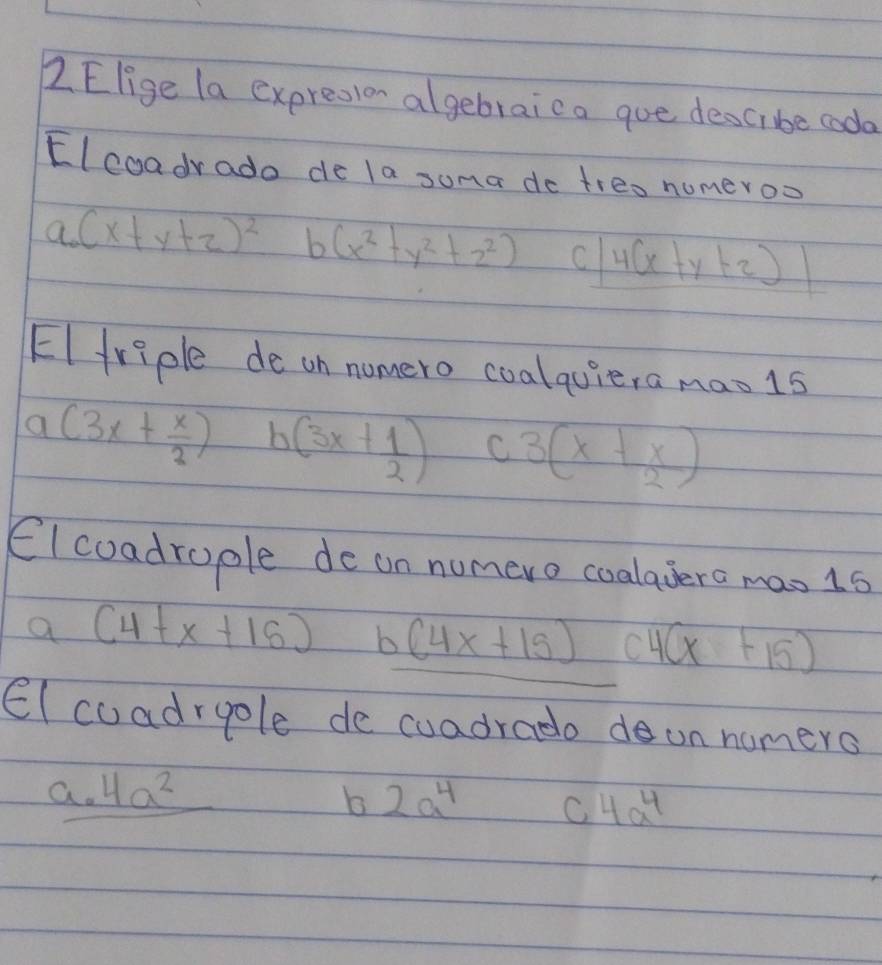 2 Elige la expresion algebraica que describe cada
El coadrado de la suma de tres numeros
a.(x+y+z)² b(x²+y²+z²) c|4(x+y+z)|
El triple de un numero coalquiera mas 15
a(3x+x/2) b(3x+1/2) c 3(x+x/2)
El coadruple de un numero coalquiera mas 15
a (4+x+15) b(4x+15) c4(x+15)
El cuadruple de cuadrado de un numero
a.4a² b 2a⁴ c.4a⁴